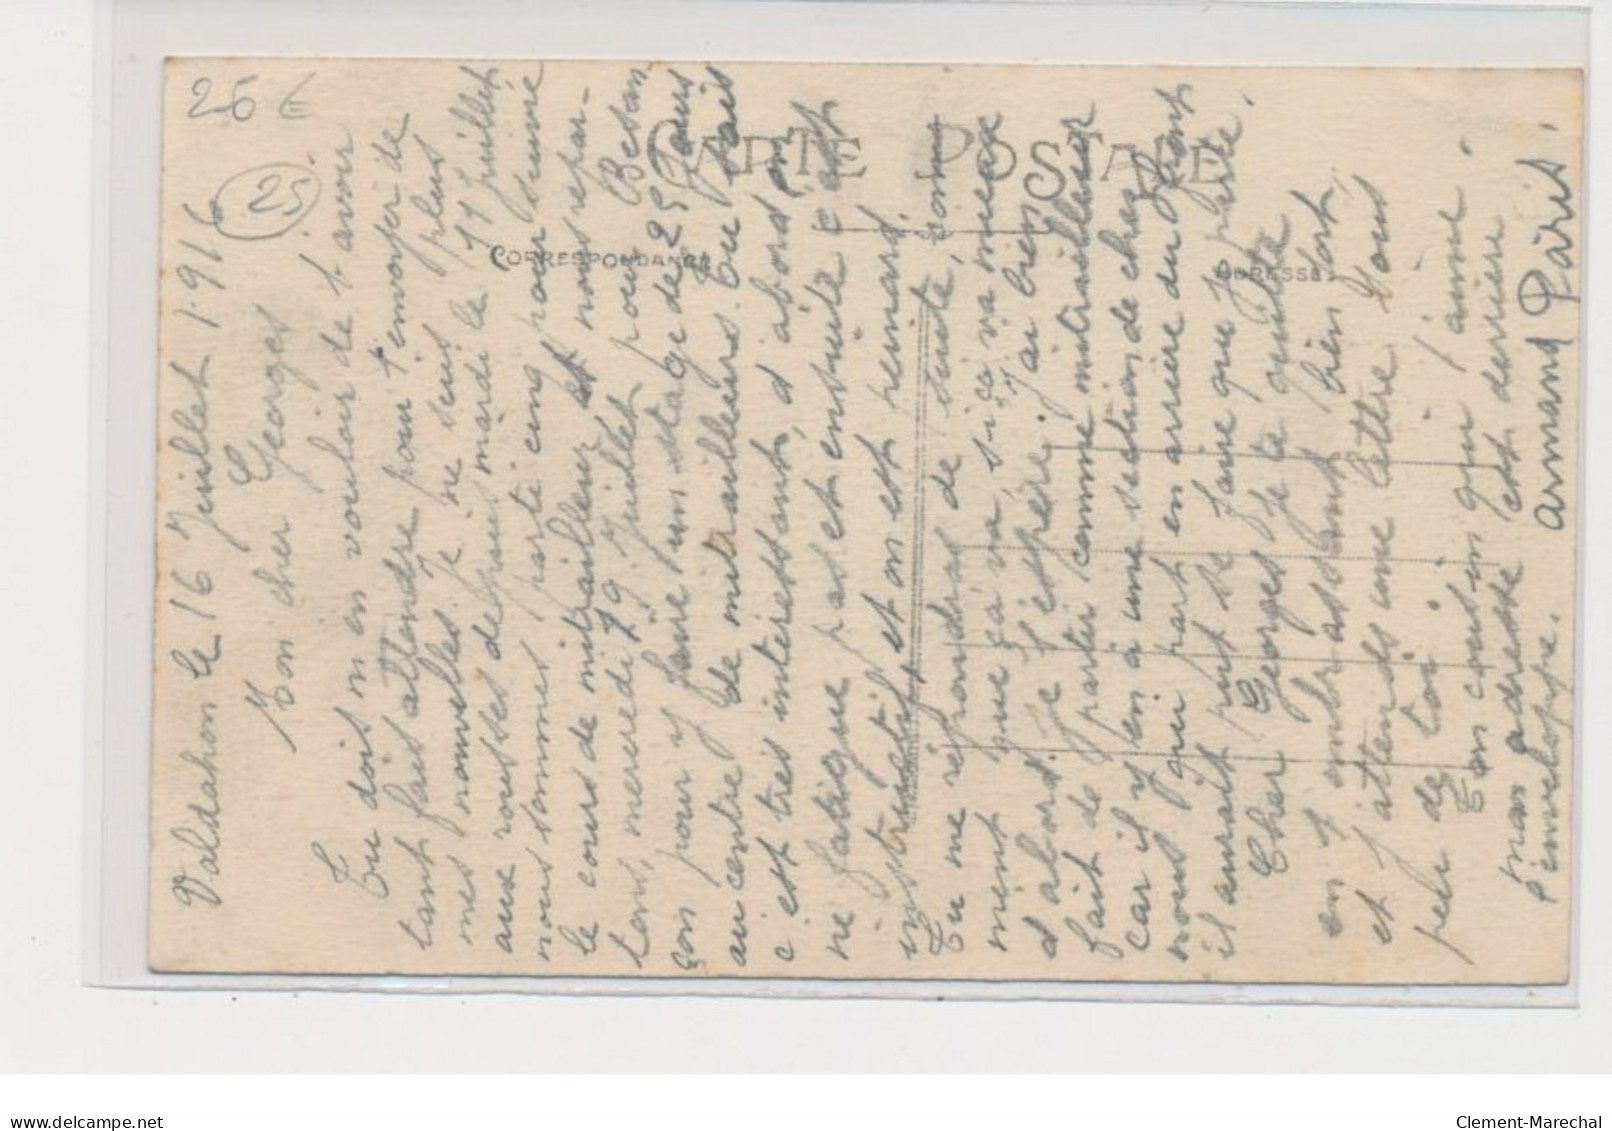 26 €
25
CARTE POSTALE
CORRESPONDANCE
ADRESSE
Valdahon le 16 Juillet 1916
Mon cher Georges
Tu dois m en vouloir de t avoir
tant fait attendre pour t envoyer de
mes nouvelles. Je ne suis plus
aux depuis mardi le 11 juillet
nous sommes parti cinq pour suivre
le cours de mitrailleur et nous repar-
tons, mercredi 19 Juillet pour Besan-
çon pour y faire un stage de 25 Jours
au centre de mitrailleurs. Tu sais
c est tres interessant, d abord on
ne fatigue pas et ensuite c est
instructif, et on est peinard.
Tu me répondras de suite, com
ment que ça va, si ça va mieux
d abord. Je l espère, j ai bien
fait de partir comme mitrailleur
car il y en à une section de chez
nous qui part en arrière du front
il aurait put se faire que je parte.
Cher Georges Je te quitte
en t embrassant bien fort,
et J attends une lettre sous
peu de toi.
Ton cousin qui t aime.
mon adresse est derrière
l'enveloppe. Armand Pâris.
delcampe.net
Clement-Marechal